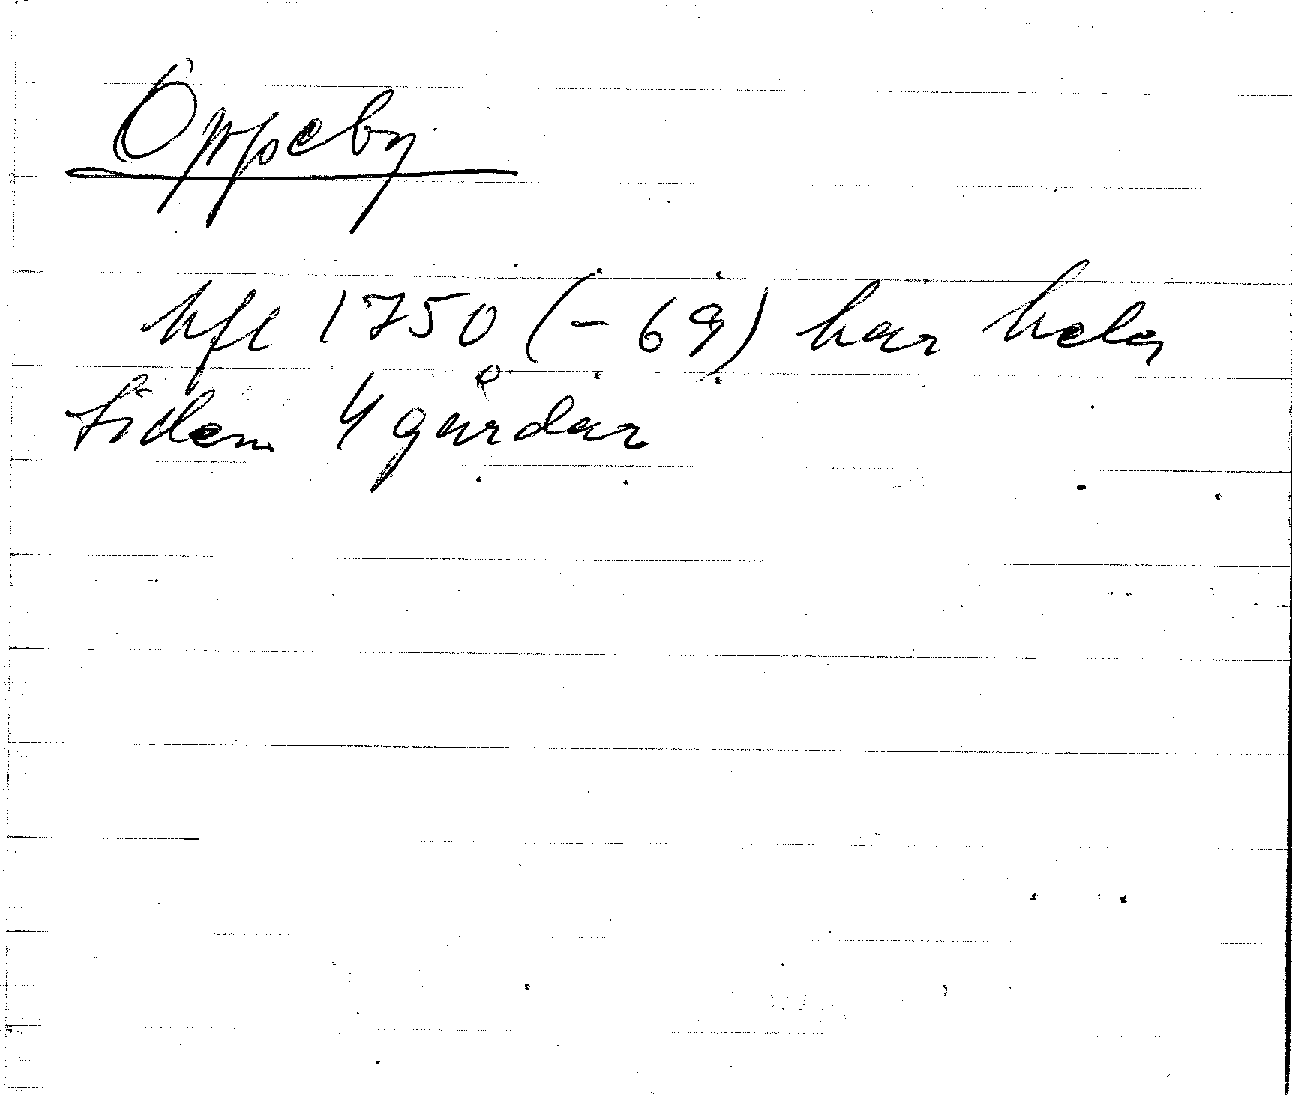 Öppeby
hfl 1750 (-69) har hela
tiden 4 gårdar